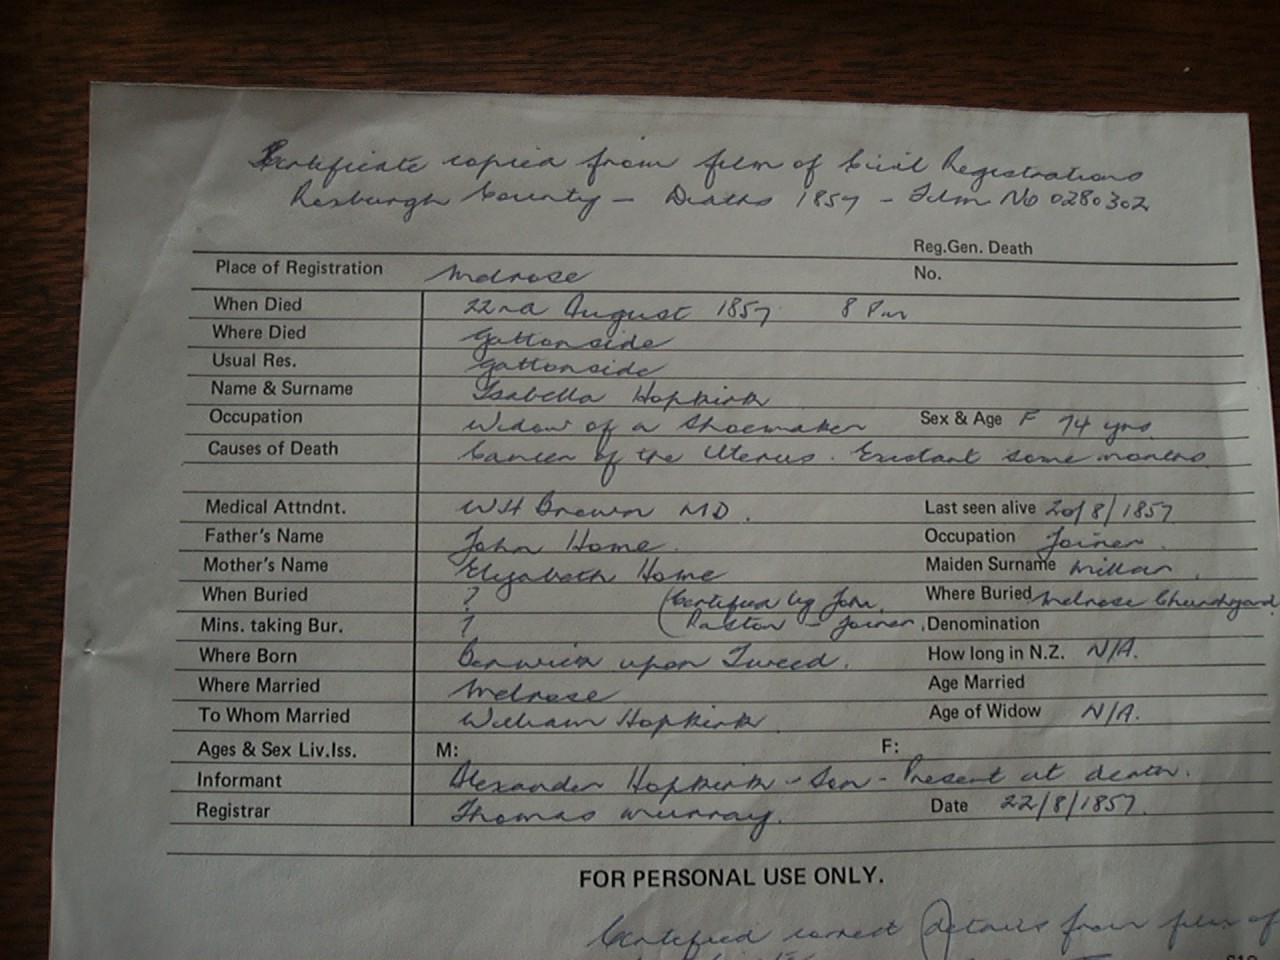 Certificate copied from film of Civil Registrations
Roxburgh County – Deaths 1857 – Film No 0280302
Reg.Gen. Death
Place of Registration Melrose No.
When Died 22nd August 1857 8 Pm
Where Died Gattonside
Usual Res. Gattonside
Name & Surname Isabella Hopkirk
Occupation Widow of a Shoemaker Sex & Age F 74 yrs
Causes of Death Cancer of the Uterus. Existant some months
Medical Attndnt. WH Brown MD. Last seen alive 20/8/1857
Father's Name John Home. Occupation Joiner.
Mother's Name Elizabeth Home Maiden Surname Millar.
When Buried ? (Certified by John Where Buried Melrose Churchyard
Mins. taking Bur. ? Paston – Joiner, Denomination
Where Born Berwick upon Tweed. How long in N.Z. N/A.
Where Married Melrose Age Married
To Whom Married William Hopkirk Age of Widow N/A.
Ages & Sex Liv.Iss. M: F:
Informant Alexander Hopkirk – Son – Present at death.
Registrar Thomas Murray. Date 22/8/1857.
FOR PERSONAL USE ONLY.
Certified correct details from film of